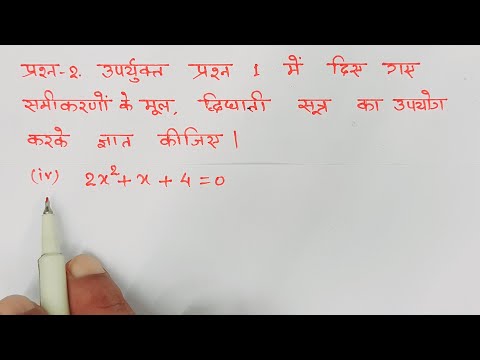 प्रश्न-2. उपर्युक्त प्रश्न 1 में दिए गए
समीकरणों के मूल, द्विघाती सूत्र का उपयोग
करके ज्ञात कीजिए।
(iv) 2x²+x+4=0